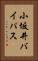 小坂井バイパス